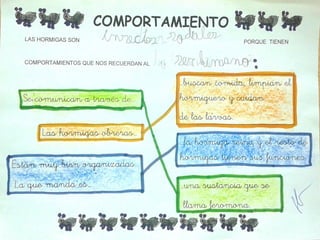 COMPORTAMIENTO
LAS HORMIGAS SON insectos sociales PORQUE TIENEN
COMPORTAMIENTOS QUE NOS RECUERDAN AL ser humano:
Se comunican a través de...
buscan comida, limpian el
hormiguero y cuidan
de las larvas.
Las hormigas obreras...
la hormiga reina y el resto de
hormigas tienen sus funciones.
Están muy bien organizadas.
La que manda es...
una sustancia que se
llama feromona.